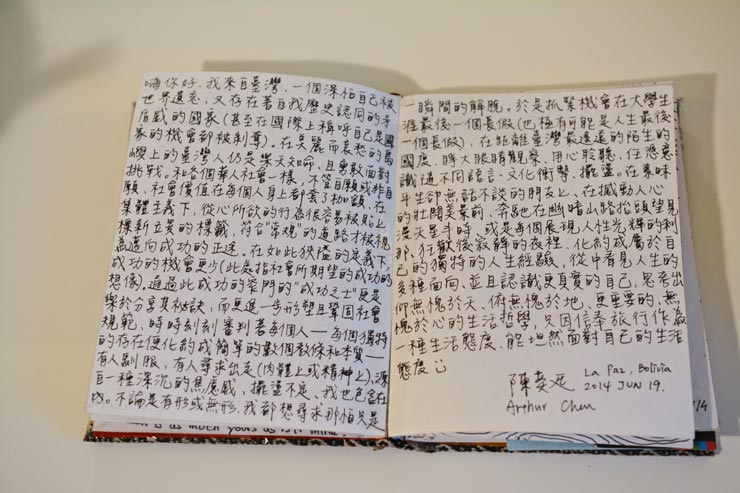 嗨你好，我來自臺灣、一個深怕自己被
世界遺忘，又存在著自我歷史認同的矛
盾感的國家(甚至在國際上稱呼自己是國
家的機會都被剝奪)。在美麗而哀愁的島
嶼上的臺灣人仍是樂天知命，且勇敢面對
挑戰。和各個華人社會一樣，不管自願或非自
願，社會價值在每個人身上都套了枷鎖，在
集體主義下，從心所欲的行為很容易被貼上
標新立異的標籤，符合"常規"的道路才被視
為邁向成功的正途。在如此狹隘的定義下，
成功的機會更少(此處指社會所期望的成功的
想像)。通過此成功的窄門的"成功之士"更是
樂於分享其祕訣，而更進一步形塑且鞏固社會
規範，時時刻刻審判著每個人——每個獨特
的存在便化約成簡單的數個教條和本質——
有人馴服，有人尋求出走(肉體上或精神上)，源
自一種深沉的焦慮感、擺盪不定、我也包含在
內。不論是有形或無形，我都想尋求那怕只是
一瞬間的解脫。於是抓緊機會在大學生
涯最後一個長假(也極有可能是人生最後
一個長假)，在距離臺灣最遙遠的陌生的
國度，睜大眼睛觀察、用心聆聽、任憑意
識隨不同語言、文化衝擊、擺盪。在素昧
平生卻無話不談的朋友上，在撼動人心
的壯闊美景前，奔馳在幽暗山路抬頭望見
滿天星斗時，或是每個展現人性光輝的剎
那、狂歡後寂靜的夜裡，化約成屬於自
己的獨特的人生經驗，從中看見人生的
各種面向，並且認識更真實的自己，思考出
仰無愧於天、俯無愧於地，更重要的，無
愧於心的生活哲學，只因信奉旅行作為
一種生活態度，能坦然面對自己的生活
態度 ⸚
La Paz, Bolivia
2014 JUN 19.
Arthur Chen
/14
is as much yours as it is mine